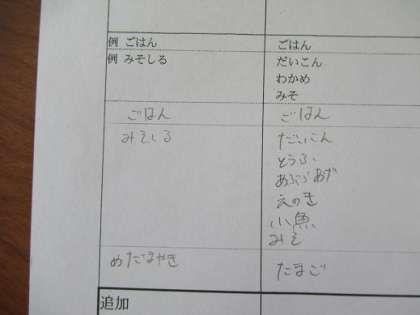 例 ごはん ごはん
例 みそしる だいこん
わかめ
みそ
ごはん ごはん
みそしる だいこん
とうふ
あぶらあげ
えのき
小魚
みそ
めだまやき たまご
追加